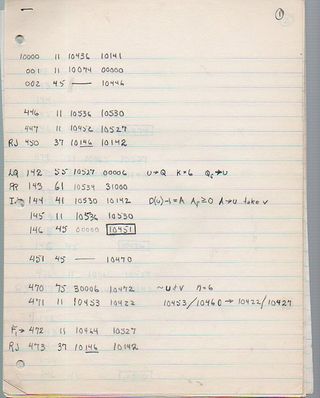 ①
10000 11 10436 10141
001 11 10074 00000
002 45 — 10446
446 11 10536 10530
447 11 10452 10527
RJ 450 37 10146 10142
LQ 142 55 10527 00006 U→Q K=6
143 61 10534 31000
144 41 10530 10142 D(u)-1=A A→U take v
145 11 10536 10530
146 45 00000 10451
451 45 — 10470
470 75 30006 10472 ~U≠V n=6
471 11 10453 10422 10453/10460 → 10422/10427
472 11 10464 10527
RJ 473 37 10146 10142